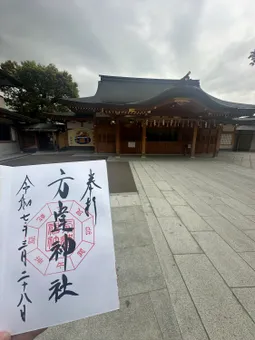 奉拝
方違神社
令和七年三月二十八日